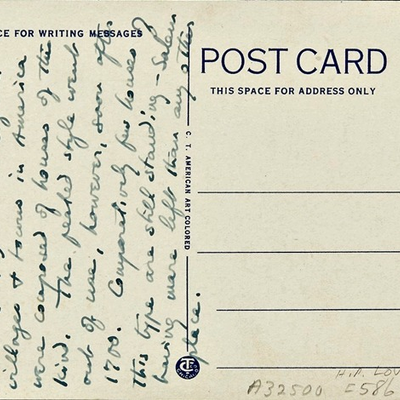 CE FOR WRITING MESSAGES
POST CARD
THIS SPACE FOR ADDRESS ONLY
C. T. AMERICAN ART COLORED
villages & towns in America
were composed of houses of this
kind. The peaked style went
out of use, however, soon after
1700. Comparatively few houses of
this type are still standing – Salem
having more left than any other
place.
H.P. LOV
A32500 = 586